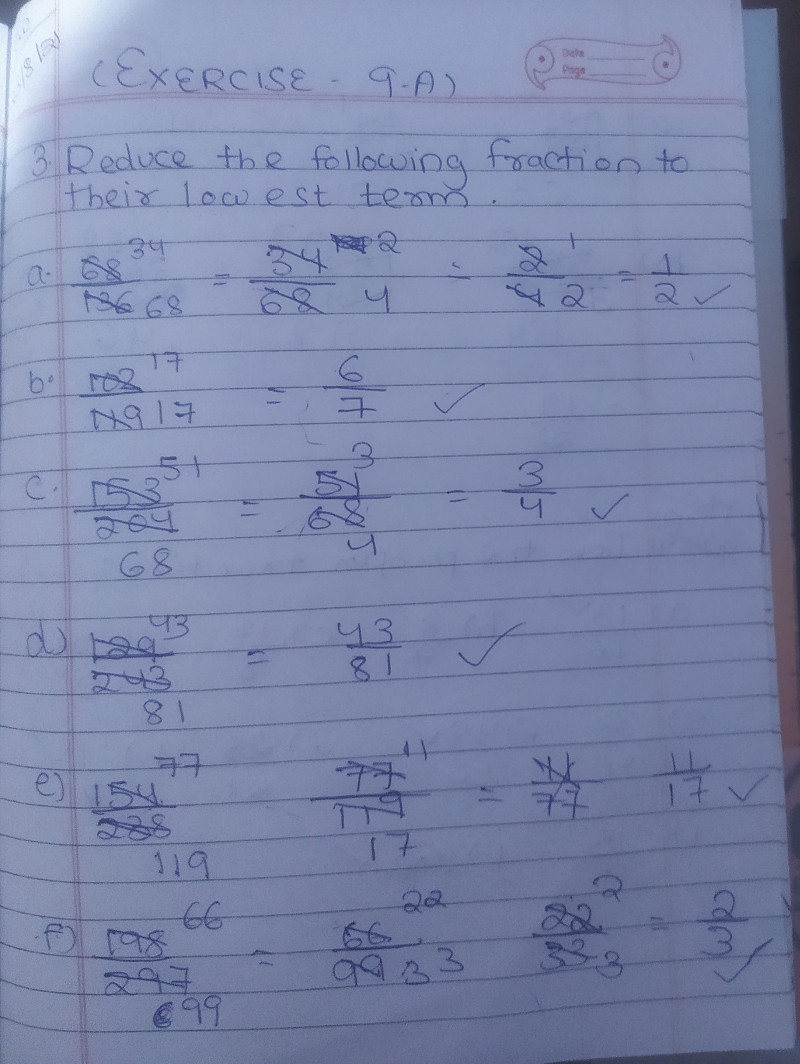 (EXERCISE - 9-A)
Date
Page
3. Reduce the following fraction to
their lowest term.
a. 68/136 34 68 = 34/68 2 4 = 2/4 1 2 = 1/2 ✓
b. 102/119 17 17 = 6/7 ✓
c. 153/204 51 68 = 51/68 3 4 = 3/4 ✓
d) 129/243 43 81 = 43/81 ✓
e) 154/238 77 119 77/119 11 17 = 11/77 11/17 ✓
f) 198/297 66 99 = 66/99 22 33 22/33 2 3 = 2/3 ✓